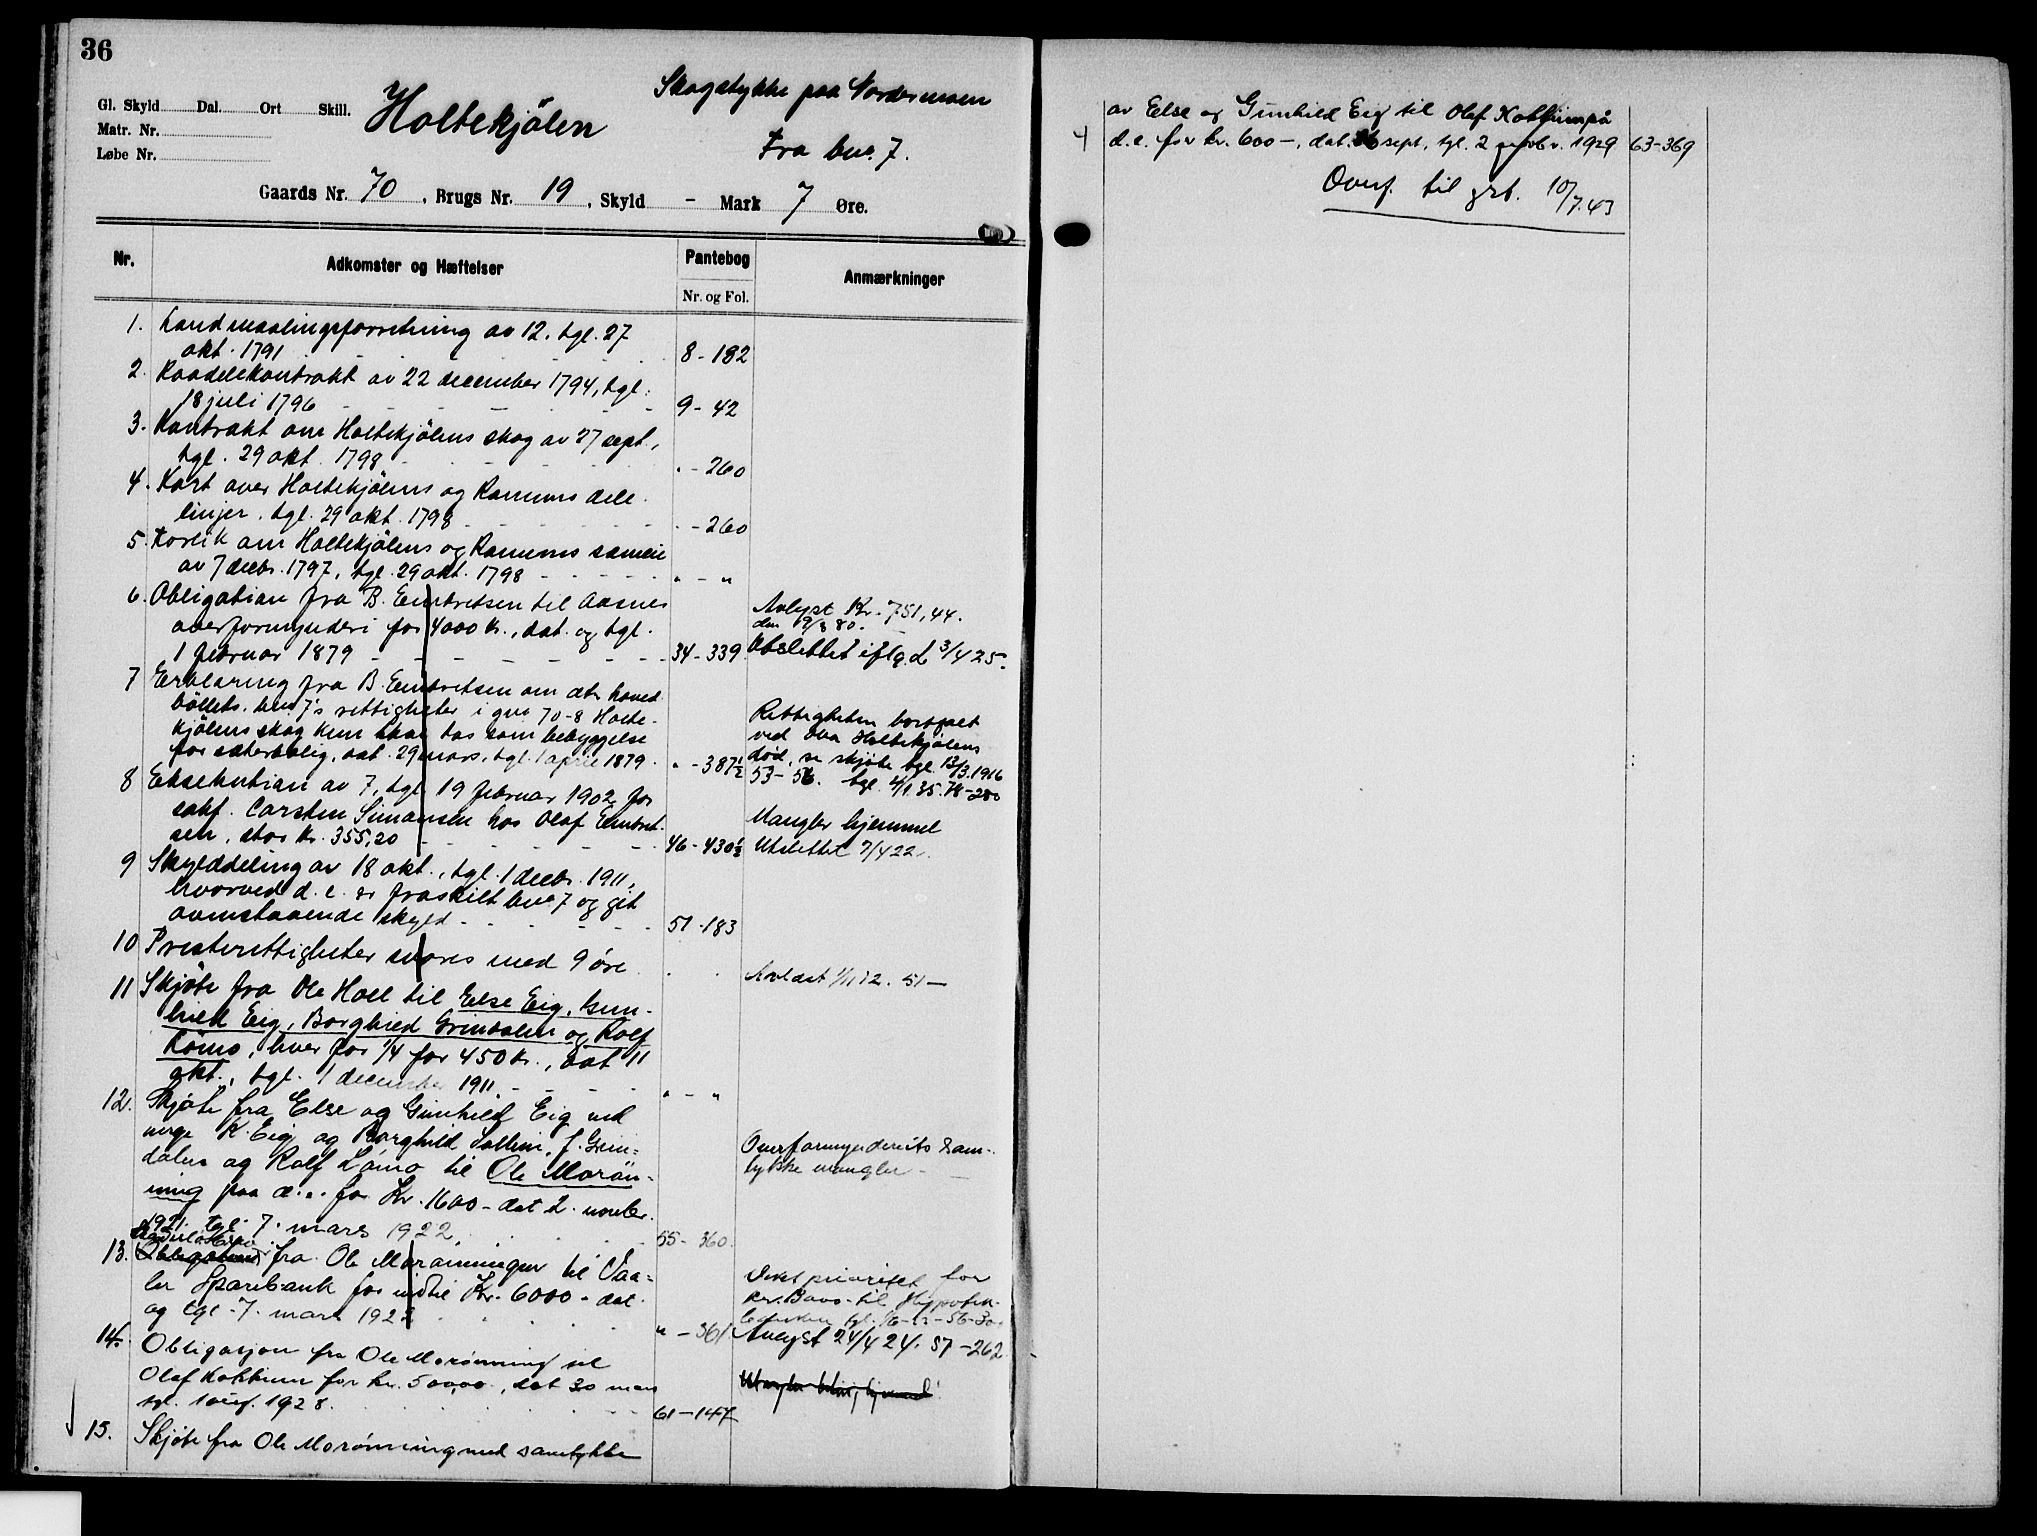 36
Gl. Skyld Dal. Ort Skill.
Matr. Nr.
Løbe Nr.
Holtekjölen
Skogstykke paa Nordermoen
Fra bno. 7.
Gaards Nr. 70, Brugs Nr. 19, Skyld - Mark 7 Øre.
Nr.
Adkomster og Hæftelser
Pantebog
Nr. og Fol.
Anmærkninger
1. Landmaalingsforretning av 12. tgl. 27
okt. 1791 8 - 182
2. Raadelekontrakt av 22 december 1794, tgl.
18 juli 1796 9 - 42
3. Kontrakt om Holtekjölens skog av 27 sept.,
tgl. 29 okt. 1798 " - 260
4. Kart over Holtekjölens og Ramms dele
linjer. tgl. 29 okt. 1798 " - 260
5. Forlik om Holtekjölens og Ramms sameie
av 7 decbr. 1797, tgl. 29 okt. 1798 " - "
6. Obligation fra B. Embretsen til Aasnes
overformynderi for 4000 kr., dat. og tgl.
1 februar 1879 34 - 339
Avlyst Kr. 751,44.
den 19/8 80.
Utslettet iflg. d. 3/4 25.
7 Erklæring fra B. Embretsen om at hoved
böllets, bno 7's rettigheter i gno 70-8 Holte-
kjölens skog kun skal tas som bebyggelse
for sæterbolig, dat. 29 mars, tgl. 1 april 1879. " - 387½
Rettigheten bortfalt
ved Ola Holtekjölens
död, se skjöte tgl. 13/3.1916
53 - 56. tgl. 4/1 35. 78-280
8 Eksekution av 7, tgl. 19 februar 1902 for
sakf. Carsten Simonsen hos Olaf Embret-
sen, stor kr. 355,20 46 - 430½
Mangler hjemmel
Utslettet 7/4 22.
9 Skylddeling av 18 okt., tgl. 1 decbr. 1911,
hvorved d. e. er fraskilt bno 7 og git
ovenstaaende skyld 51 - 183
10 Presterettigheter svares med 9 öre
Avlöst 1/11 12. 51 —
11 Skjöte fra Ole Holt til Else Eig, Gun-
hild Eig, Borghild Grindalen og Rolf
Lömo, hver for 1/4 for 450 kr., dat 11
okt., tgl. 1 december 1911. " - "
12. Skjöte fra Else og Gunhild Eig ved
verge K. Eig og Borghild Grin-
dalen og Rolf Lömo til Ole Morön-
ning paa d. e. for Kr. 1600 - dat 2. novbr.
1921. tgl. 7. mars 1922. 55 - 360.
Overformynderiets sam-
tykke mangler
13. Obligation fra Ole Morönningen til Vaa-
ler Sparebank for indtil Kr. 6000 - dat.
og tgl. 7. mars 1922 " - 361
Veket prioritet for
Avlyst 24/4 24. 57 - 262
14. Obligasjon fra Ole Morönning til
Olaf Kokkim for kr. 5000, dat 30 mars
tgl. 1928. 61 - 147
15. Skjöte fra Ole Morönning med samtykke
av Else og Gunhild Eig til Olaf Kokkim på
d.e. for kr. 600 -, dat. 26 sept, tgl. 2 1929 63-369
Overf. til grb. 10/7.43